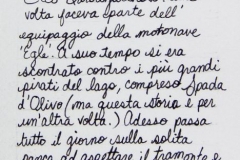 volta faceva parte dell'
equipaggio della motonave
'Egle'. A suo tempo si era
scontrato contro i più grandi
pirati del lago, compreso Spada
d'Olivo (ma questa storia è per
un'altra volta.) Adesso passa
tutto il giorno sulla solita
panca ad aspettare il tramonto e